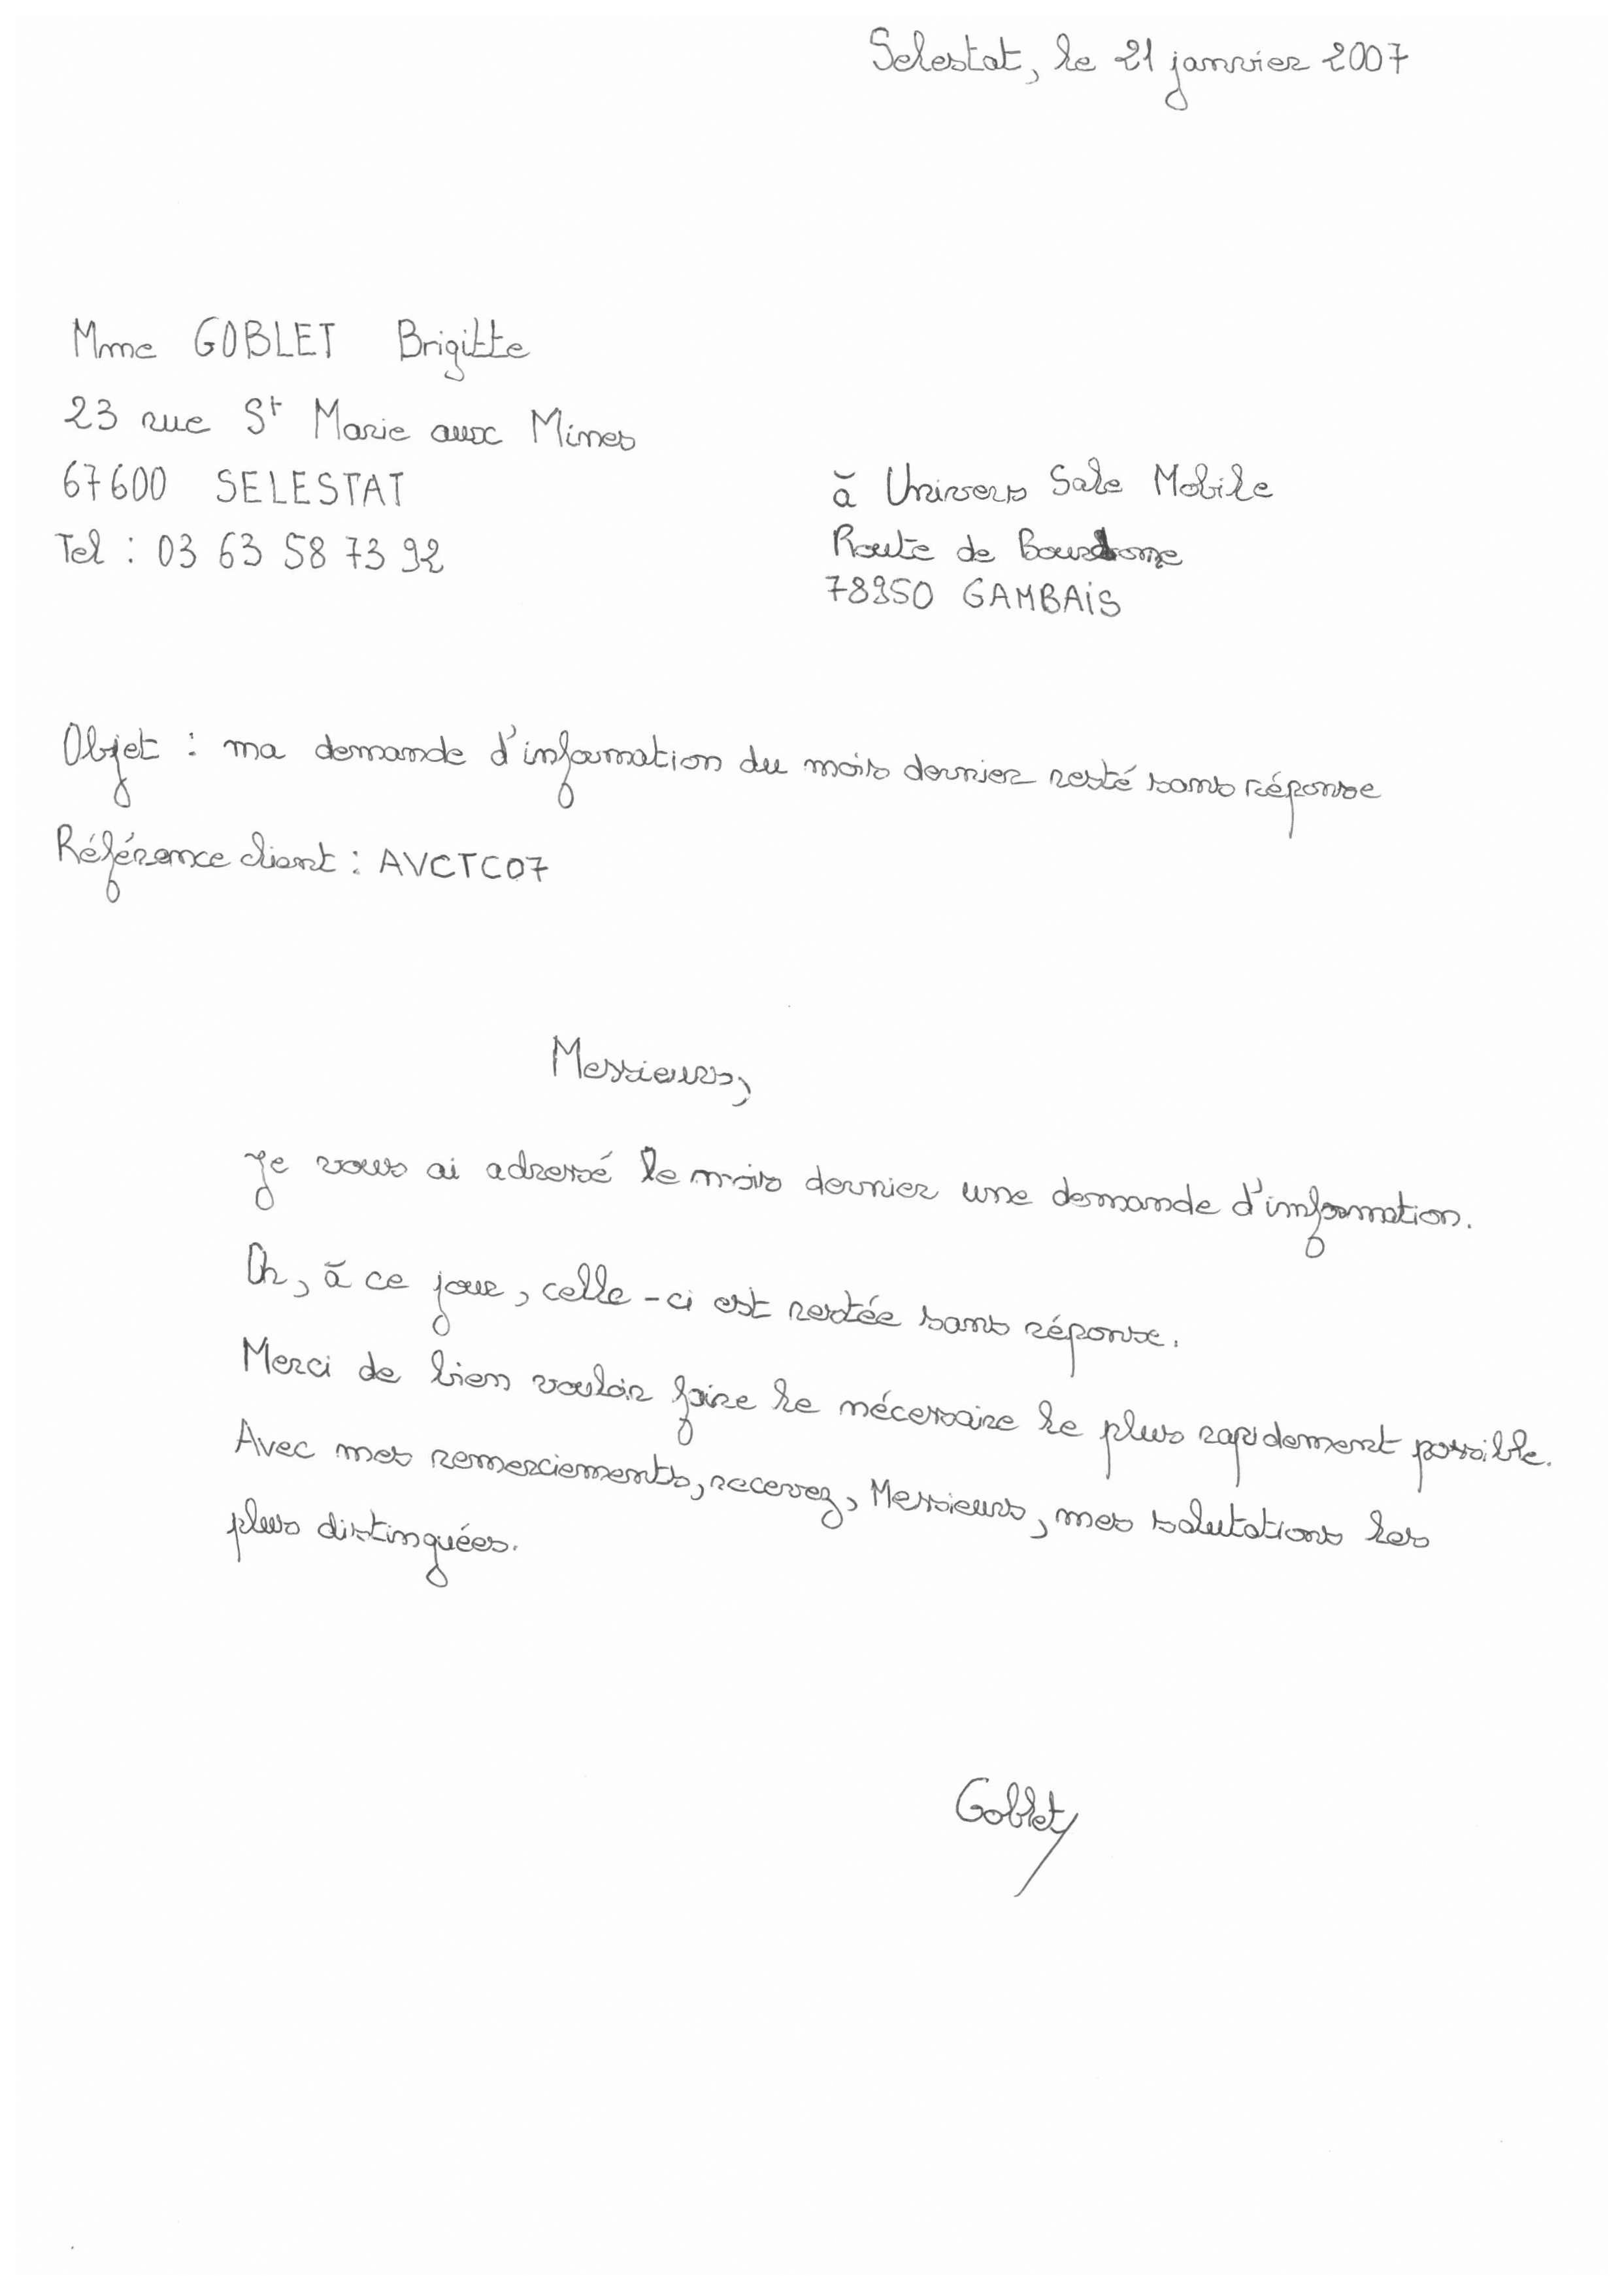 Selestat, le 21 janvier 2007
Mme GOBLET Brigitte
23 rue St Marie aux Mines
67600 SELESTAT
Tel : 03 63 58 73 92
à Univers Sale Mobile
Route de Bourdonne
78950 GAMBAIS
Objet : ma demande d'information du mois dernier resté sans réponse
Référence client : AVCTC07
Messieurs,
Je vous ai adressé le mois dernier une demande d'information.
Or, à ce jour, celle-ci est restée sans réponse.
Merci de bien vouloir faire le nécessaire le plus rapidement possible.
Avec mes remerciements, recevez, Messieurs, mes salutations les
plus distinguées.
Goblet